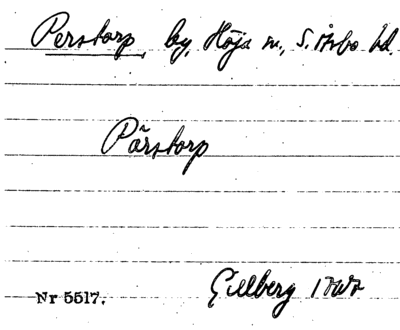 Perstorp by, Höja sn., S. Åsbo hd.
Pärstorp
Nr 5517.
Gillberg